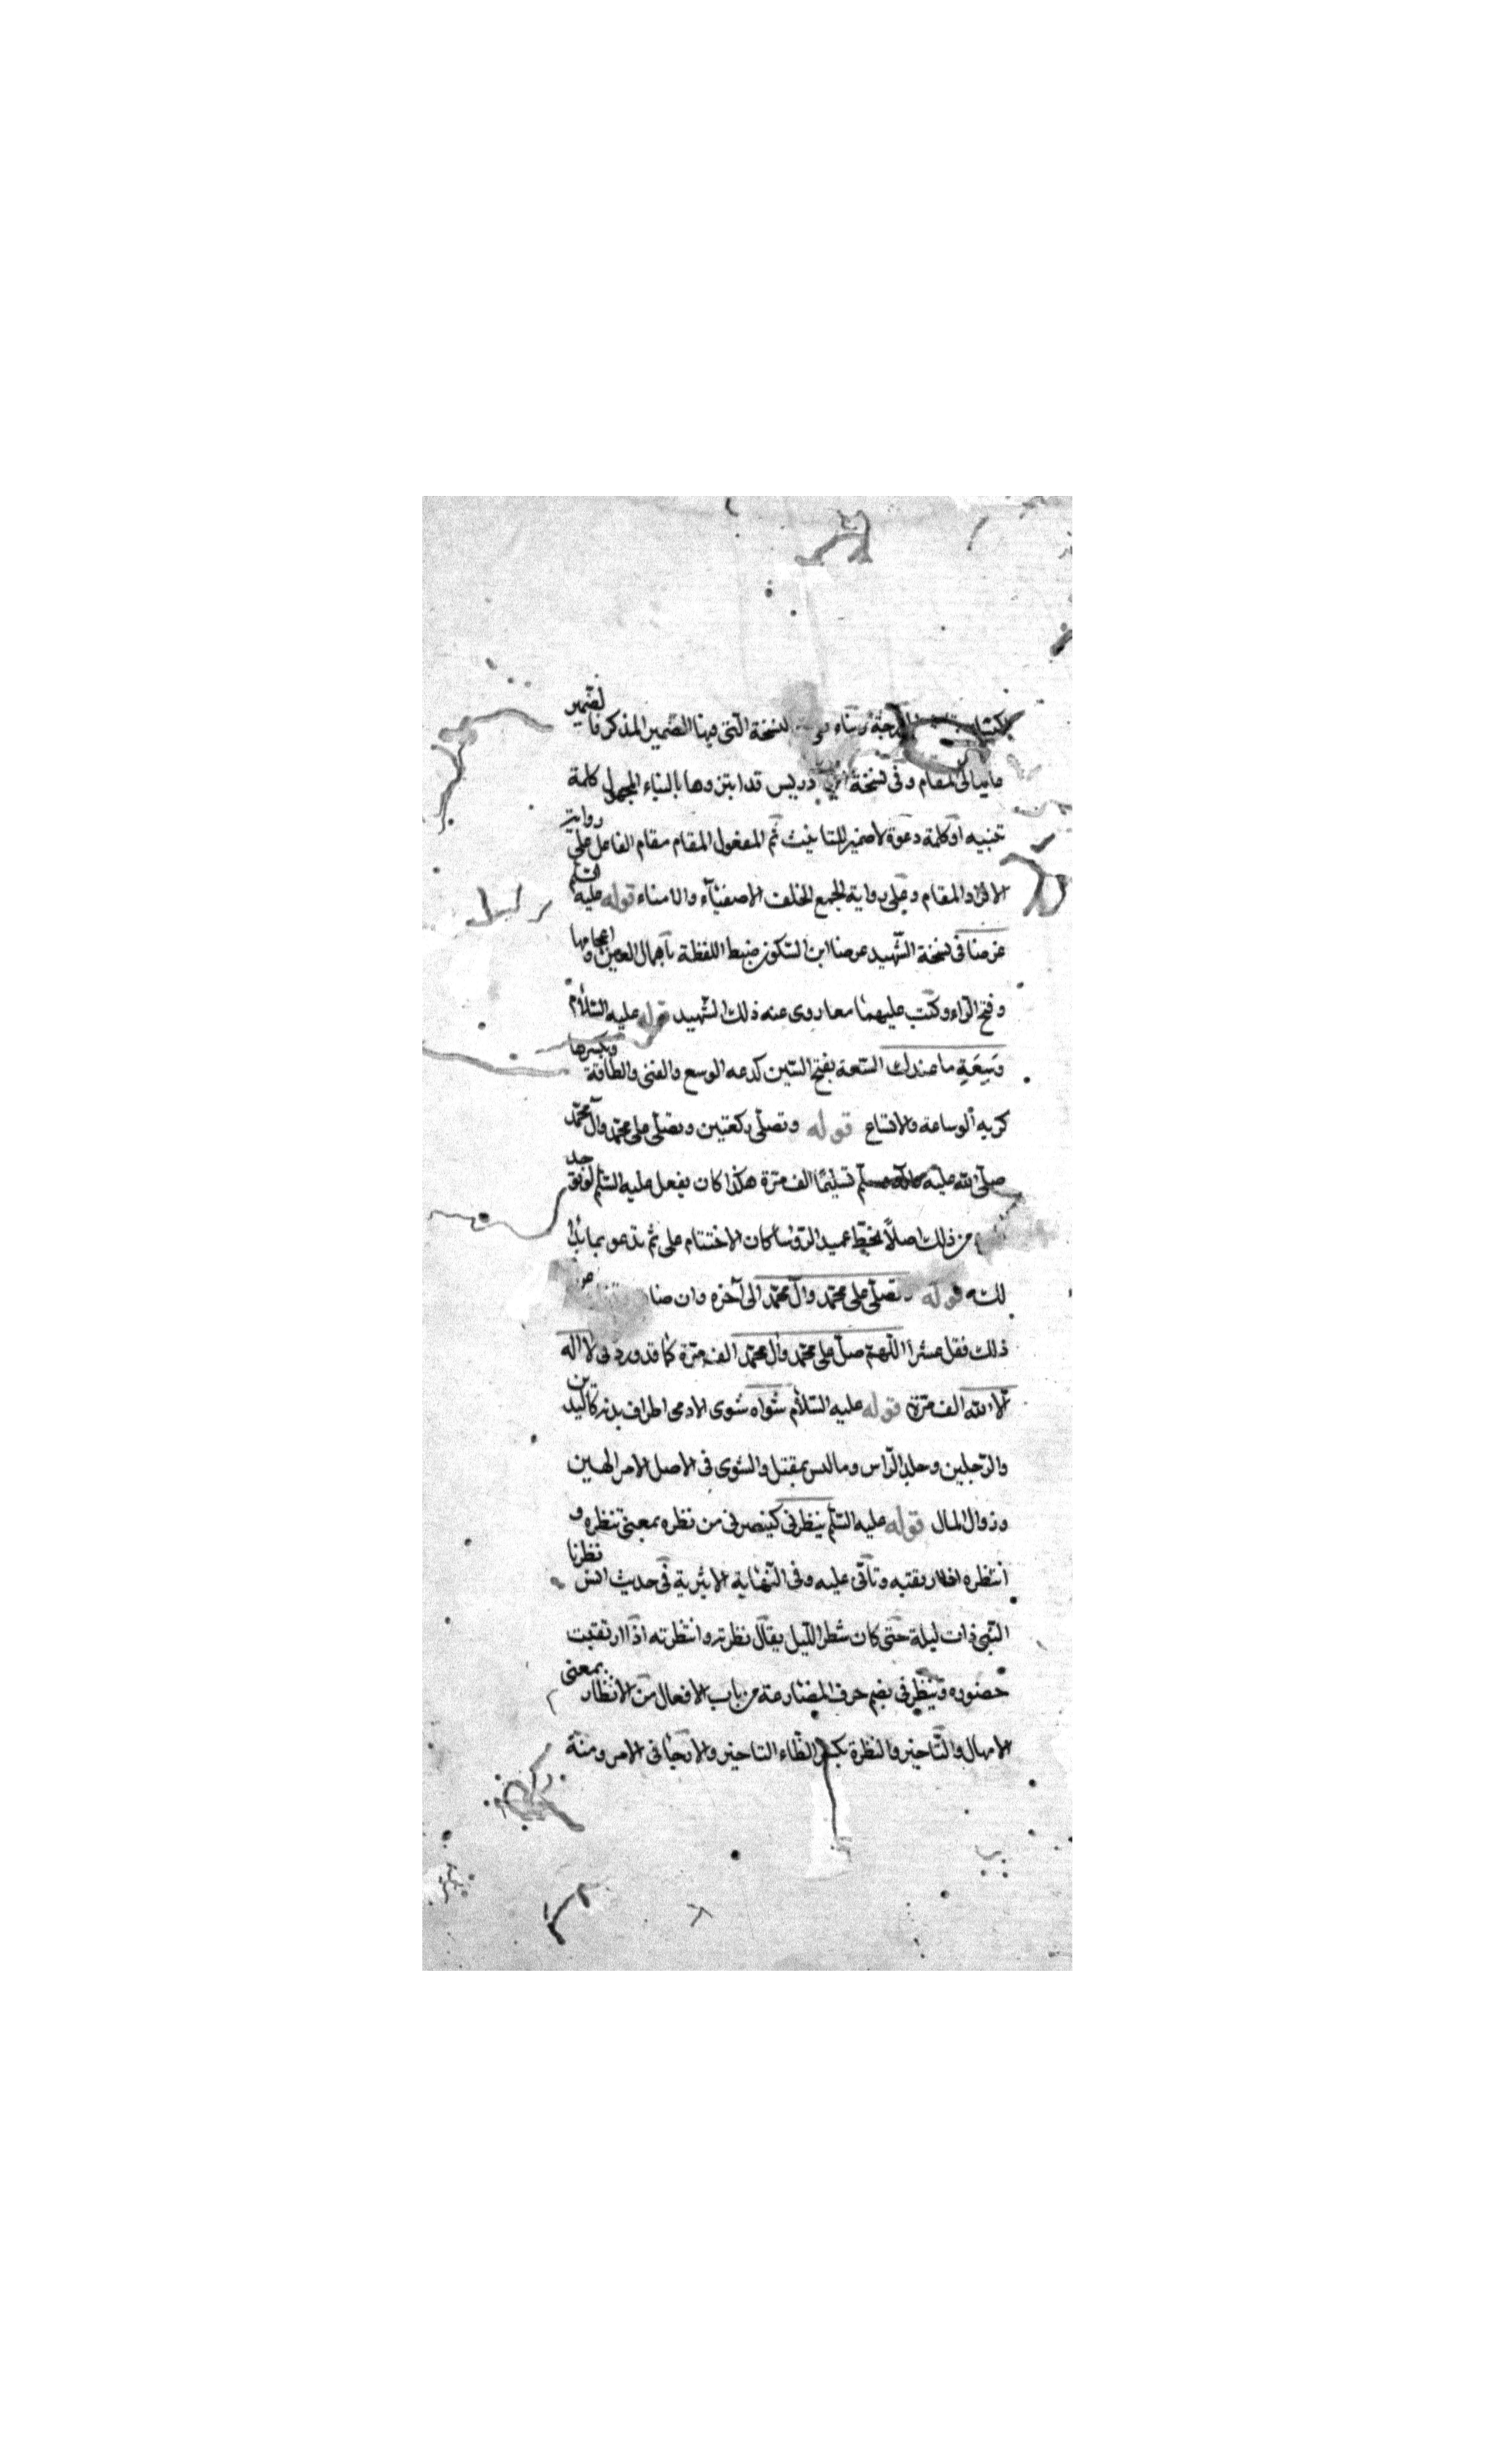 النسخة التى فيها الضمير المذكر فالضمير
المقام وفى نسخة ابن ادريس قد ابتزوها بالبناء للمجهول كلمة
تنبيه او كلمة دعوة لا ضمير للتانيث ثم المفعول المقام مقام الفاعل على رواية
الافراد المقام وعلى رواية الجمع الخلف الاصفياء والامناء قوله عليه السلم
عرصنا فى نسخة الشهيد عرصنا ابن السكون ضبط اللفظة باهمال العين واعجامها
وفتح الراء وكتب عليهما معا روى عنه ذلك الشهيد قوله عليه السلام
وسعة ما عندك السعة بفتح السين كدعه الوسع والغنى والطاقة وبكسرها
كزيه الوساعة والاتساع قوله وتصلى ركعتين وتصلى على محمد وآل محمد
صلى الله عليه وآله وسلم تسليما الف مرة هكذا كان يفعل عليه السلم
من ذلك اصلا بخط عميد الرؤسا كان الاختتام على ثم تدعو بما بدا
لك قوله وتصلى على محمد وآل محمد الى آخره وان
ذلك فقل عشرا اللهم صل على محمد وآل محمد الف مرة كما قد ورد فى لا اله
الا الله الف مرة قوله عليه السلام شواه شوى الادمى اطراف بدنه كاليدين
والرجلين وجلد الراس وما ليس بمقتل والشوى فى الاصل الامر الهين
وذوال المال قوله عليه السلم ينظرنى كينصرنى من نظره بمعنى تنظره و
انتظره اذا ارتقبه وتأنى عليه وفى النهاية الاثيرية فى حديث انس نظرنا
النبى ذات ليلة حتى كان شطر الليل يقال نظرته وانتظرته اذا ارتقبت
حضوره وينظرنى بضم حرف المضارعة من باب الافعال من الانظار بمعنى
الامهال والتاخير والنظرة بكسر الظاء التاخير فى الامر ومنة